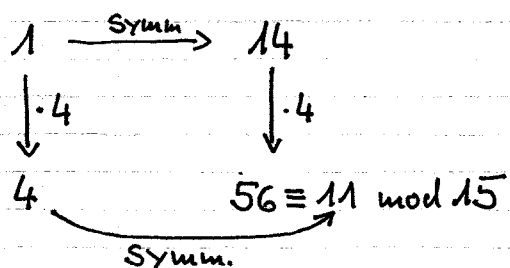 Symm
1 → 14
↓ ·4 ↓ ·4
4 56 ≡ 11 mod 15
Symm.